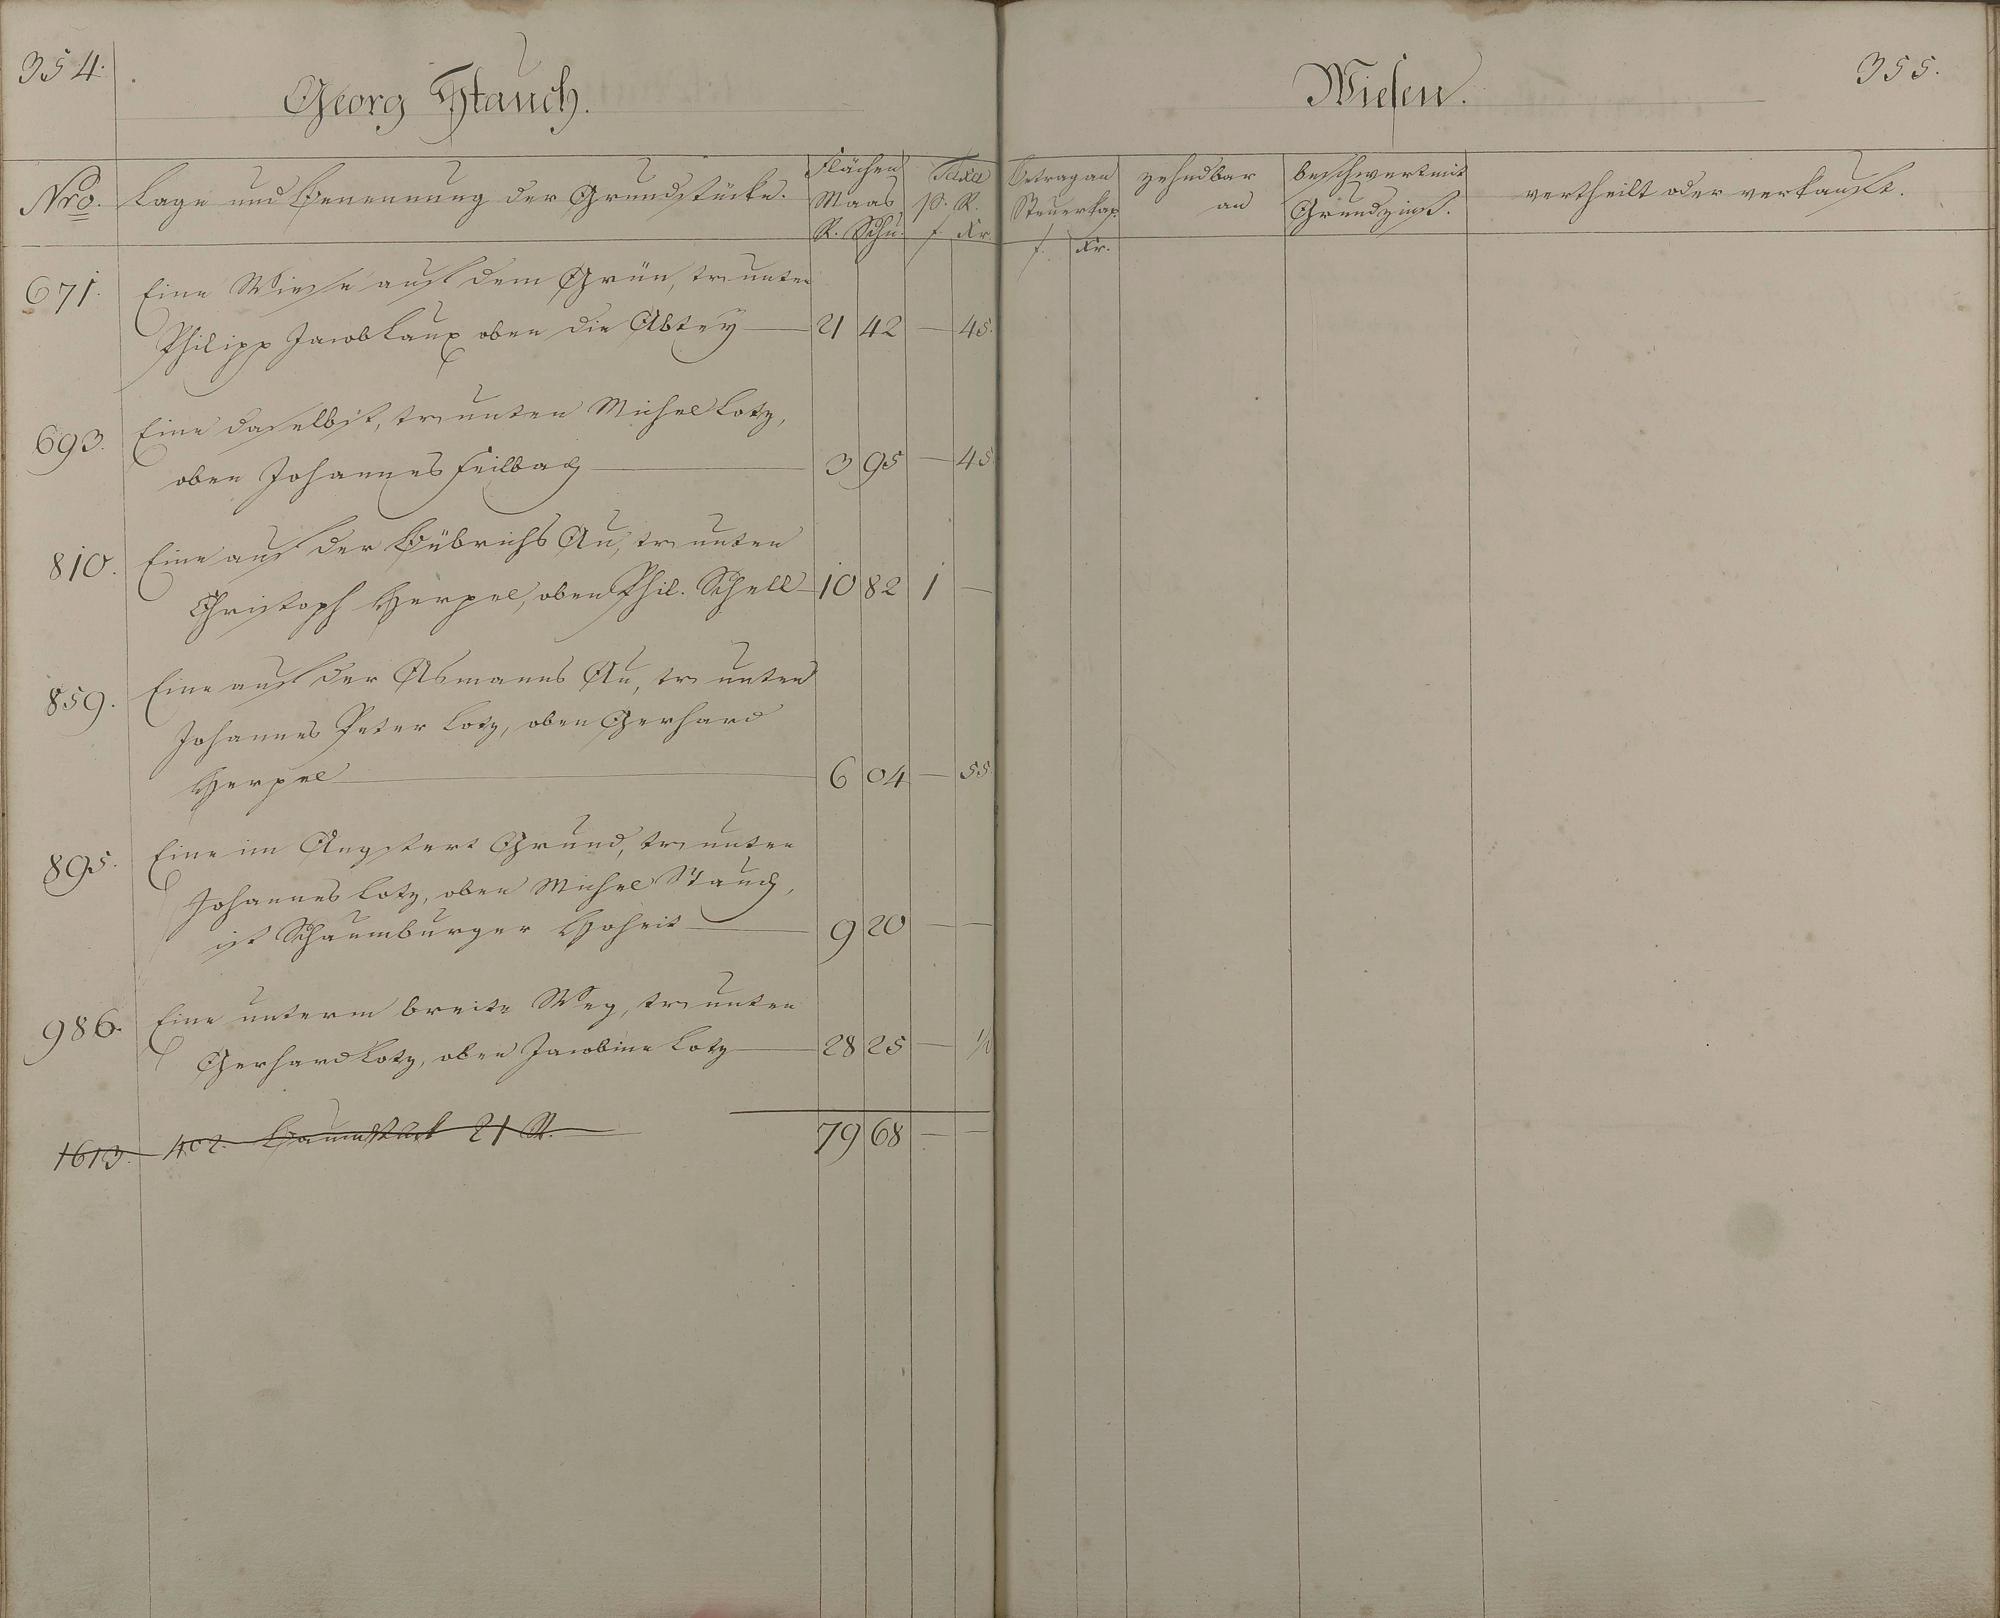 354.
Georg Stauch.
Nro.
Lage und Benennung der Grundstücke.
Flächen Maas
R. Schu.
Taxa p. R.
f. Kr.
671. Eine Wiese auf dem Grün, tr. unten
Philipp Jacob Laux oben die Abtey — 21 42 — 45.
693. Eine daselbst, tr. unten Michel Lotz,
oben Johannes Feilbach — 3 95 — 45
810. Eine auf der Bübrichs Au, tr. unten
Christoph Herpel, oben Phil. Schell — 10 82 1 —
859. Eine auf der Asmanns Au, tr. unten
Johannes Peter Lotz, oben Gerhard
Herpel — 6 04 — 55.
895. Eine im Angstert Grund, tr. unten
Johannes Lotz, oben Michel Stauch,
ist Schaumburger Hoheit — 9 20 — —
986. Eine unterm breite Weg, tr. unten
Gerhard Lotz, oben Jacobine Lotz — 28 25 —
1613. 402. 21 R.
79 68 — —
Wiesen.
355.
Betrag an Steuerkap.
f. Kr.
zehndbar an
beschwert mit Grundzinß.
vertheilt oder verkauft.